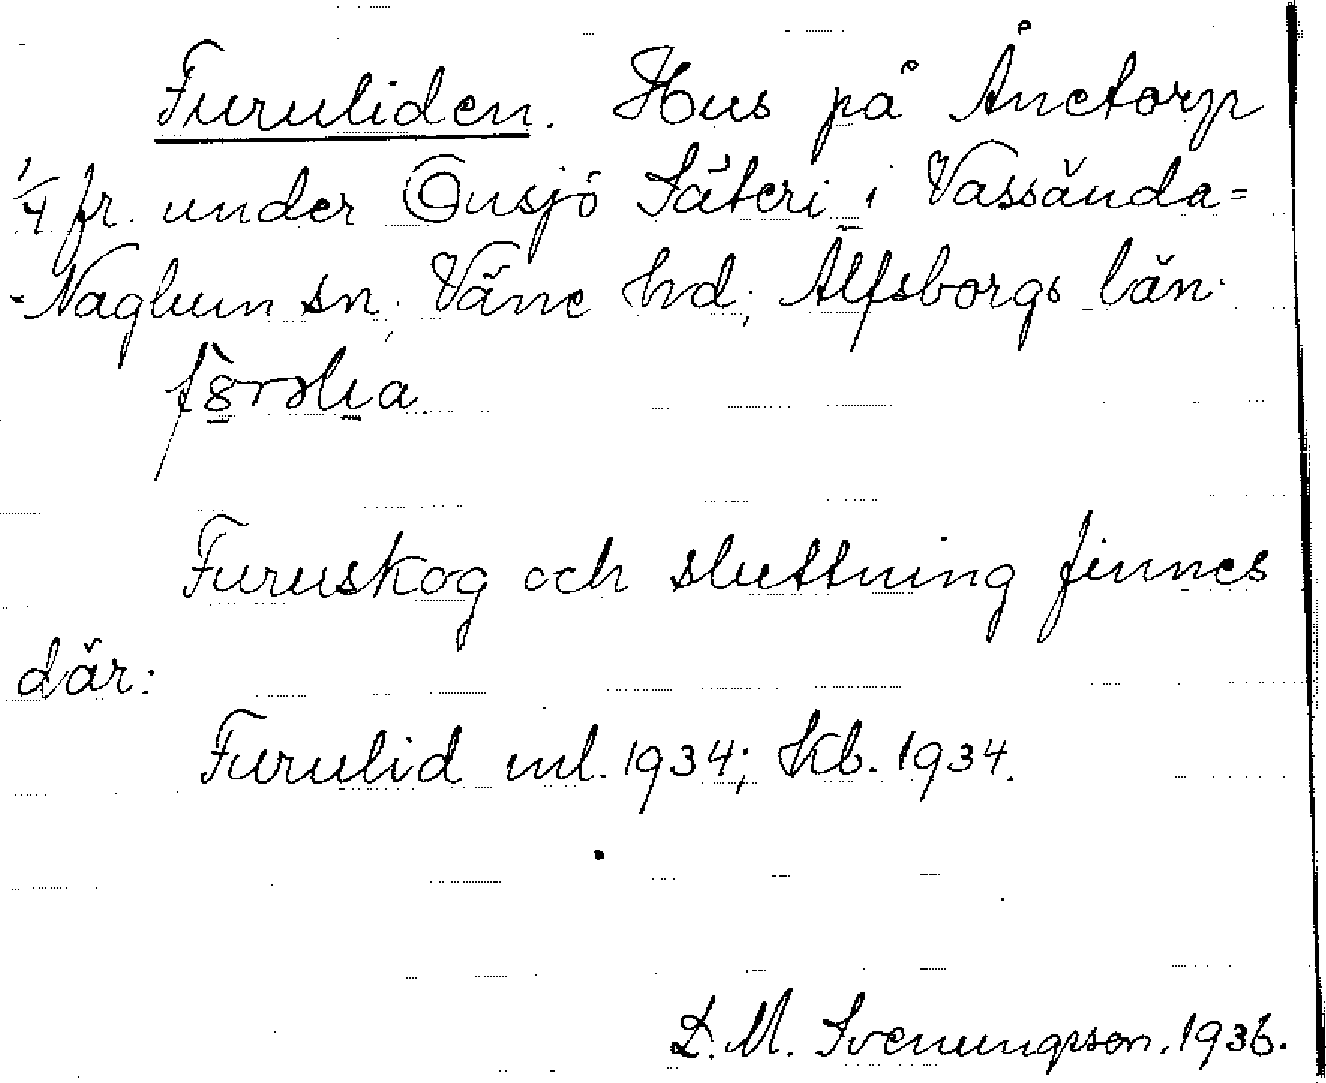 Furuliden. Hus på Ånetorp
1/4 fr. under Önsjö Säteri i Vassända=
-Naglum sn; Väne hd; Älfsborgs län.
Furuskog och sluttning finnes
där:
Furulid ml. 1934; Kb. 1934.
D. M. Svenungsson. 1936.